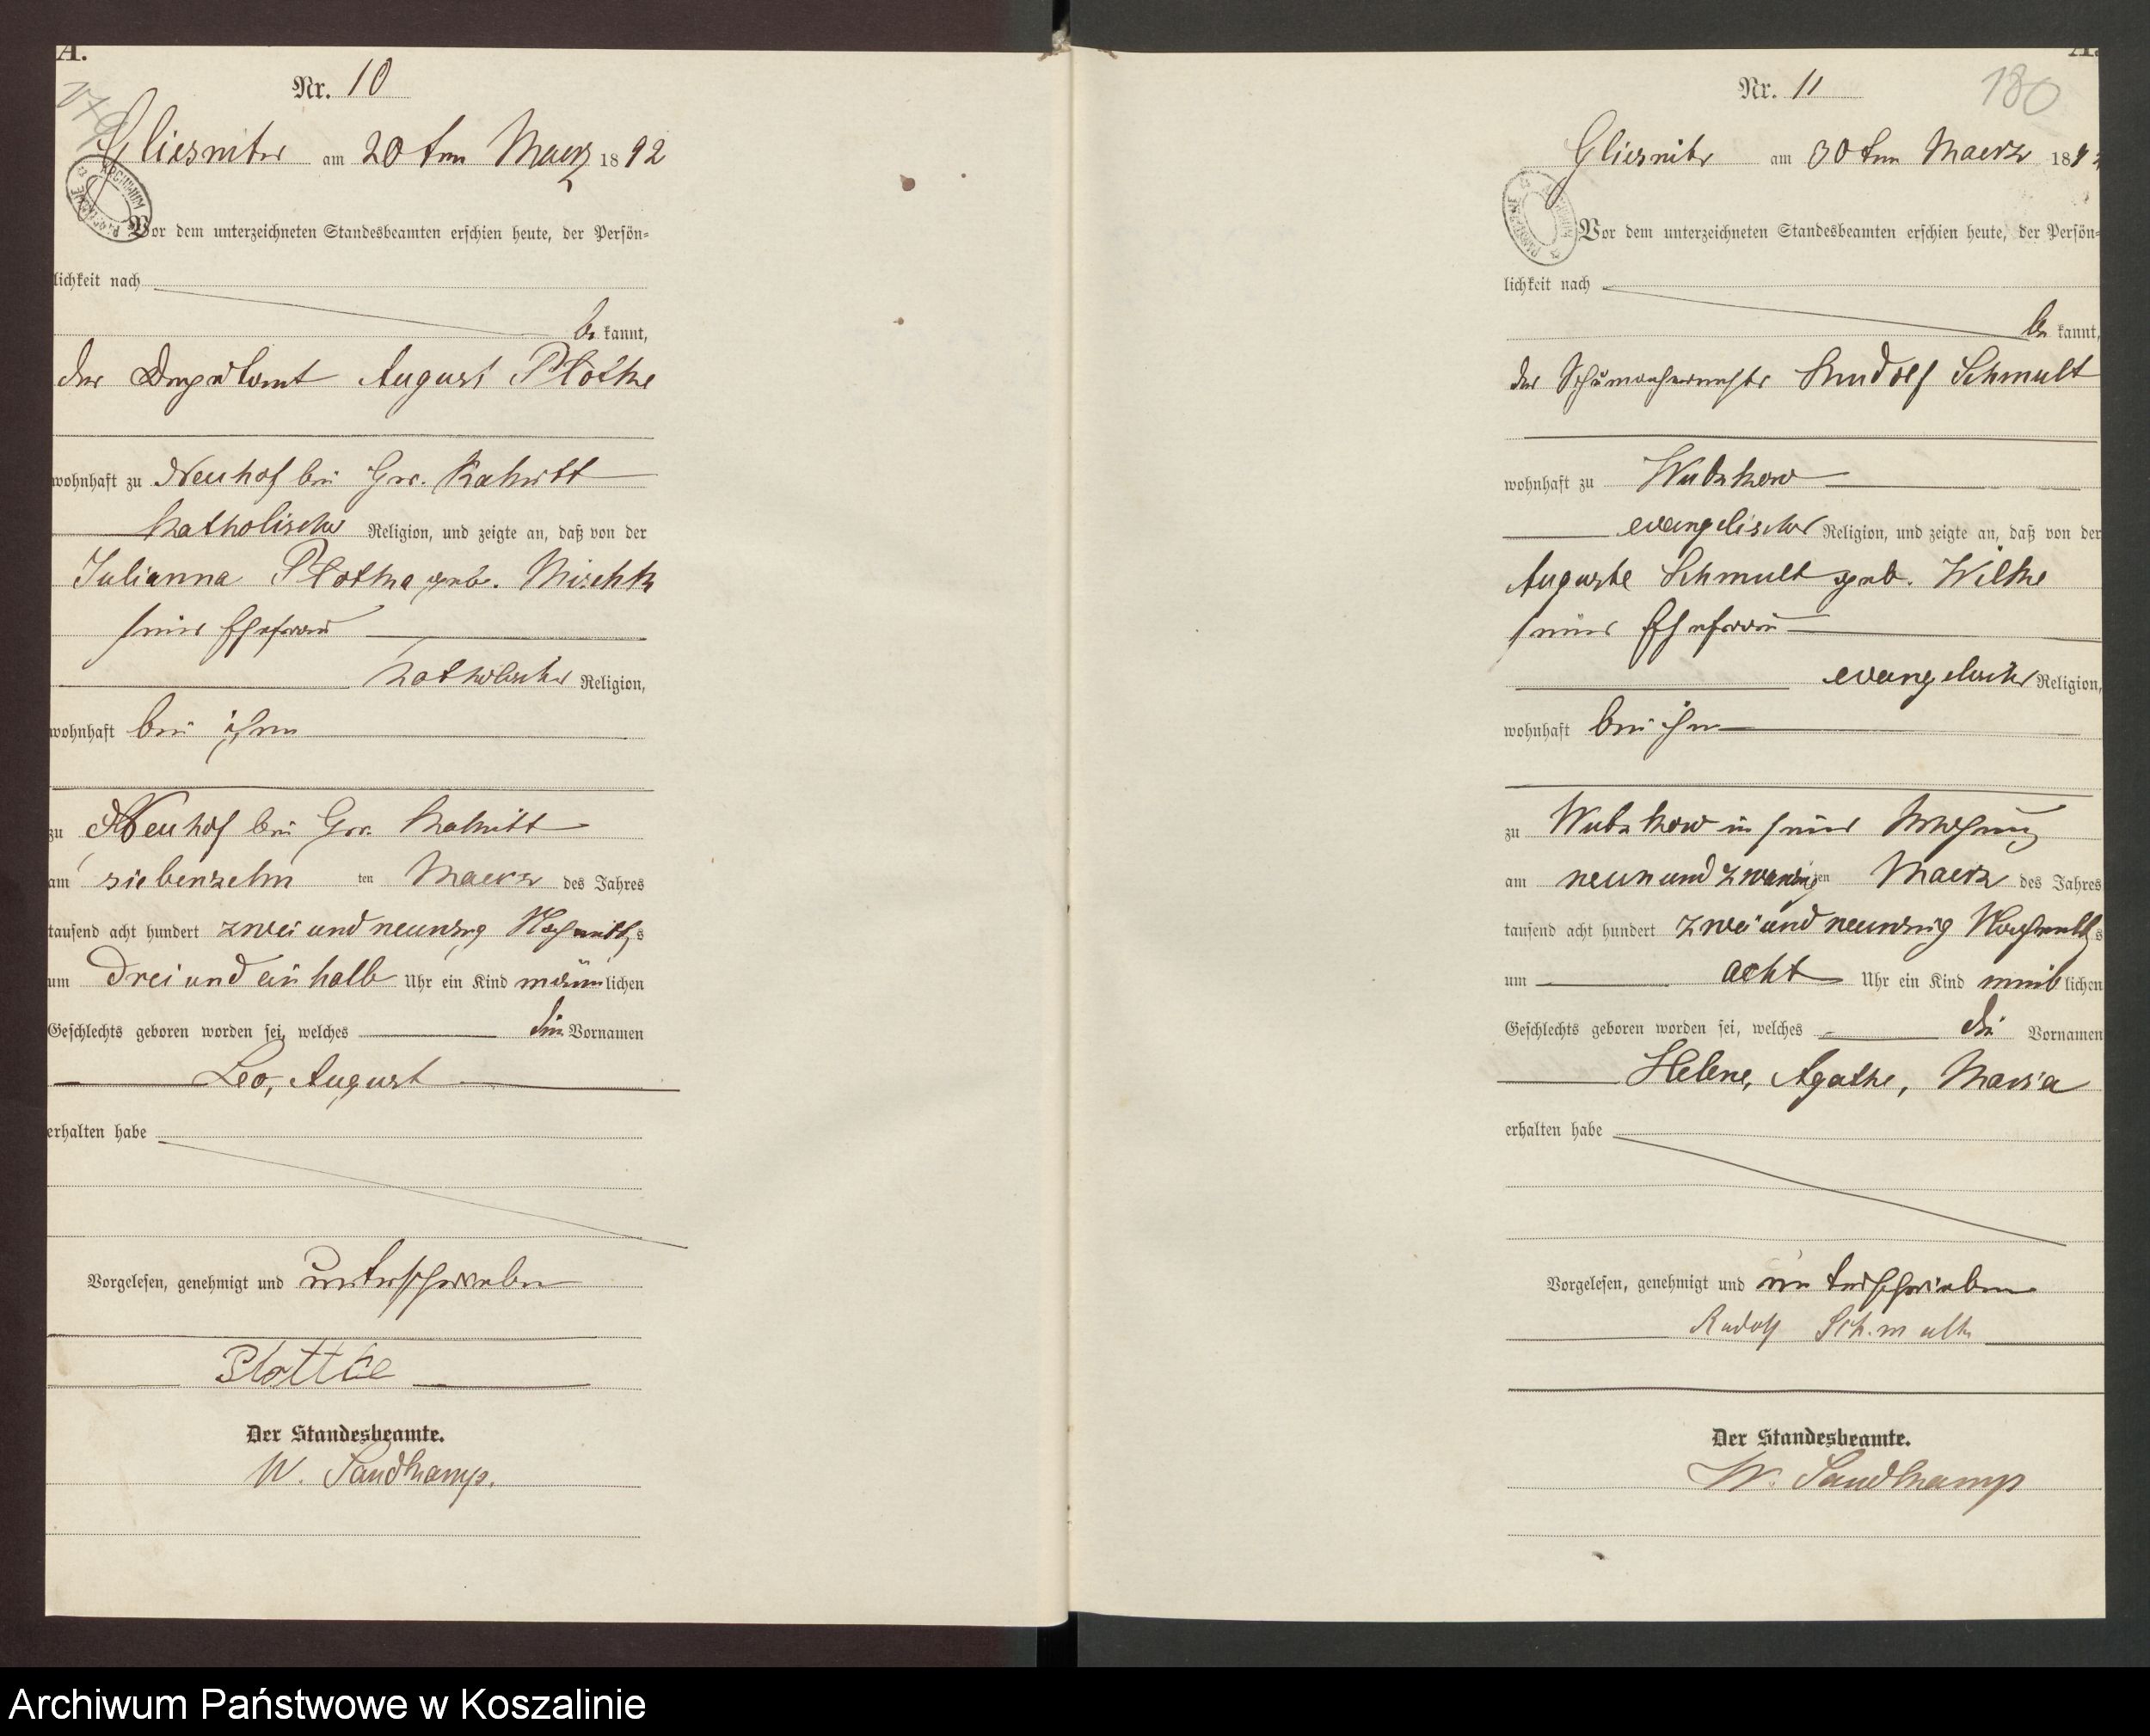 A.
179
Nr. 10
Gliesnitz am 20ten Maerz 1892
Vor dem unterzeichneten Standesbeamten erschien heute, der Persön=
lichkeit nach
be kannt,
der Deputant August Plothke
wohnhaft zu Neuhof bei Gr.
katholischer Religion, und zeigte an, daß von der
Julianna Plothke geb. Mischke
seiner Ehefrau
katholischer Religion,
wohnhaft bei ihm
zu Neuhof bei Gr.
am siebenzehn ten Maerz des Jahres
tausend acht hundert zwei und neunzig Nachmittags
um drei und ein halb Uhr ein Kind männlichen
Geschlechts geboren worden sei, welches die Vornamen
Leo, August
erhalten habe
Vorgelesen, genehmigt und unterschrieben
Plottke
Der Standesbeamte.
W. Sandkamp.
A.
180
Nr. 11
Gliesnitz am 30ten Maerz 189
Vor dem unterzeichneten Standesbeamten erschien heute, der Persön=
lichkeit nach
be kannt,
der Schumachermeister Rudolf Schmult
wohnhaft zu Wutzkow
evangelischer Religion, und zeigte an, daß von der
Auguste Schmult geb. Wilke
seiner Ehefrau
evangelischer Religion,
wohnhaft bei ihm
zu Wutzkow in seiner Wohnung
am neun und zwanzigen Maerz des Jahres
tausend acht hundert zwei und neunzig Nachmittags
um acht Uhr ein Kind weiblichen
Geschlechts geboren worden sei, welches die Vornamen
Helene, Agathe, Maria
erhalten habe
Vorgelesen, genehmigt und unterschrieben
Rudolf Schmult
Der Standesbeamte.
W. Sandkamp
Archiwum Państwowe w Koszalinie